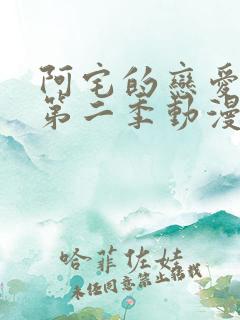 阿宅的戀愛
第二季動漫
哈菲佐娃
未经同意禁止转载